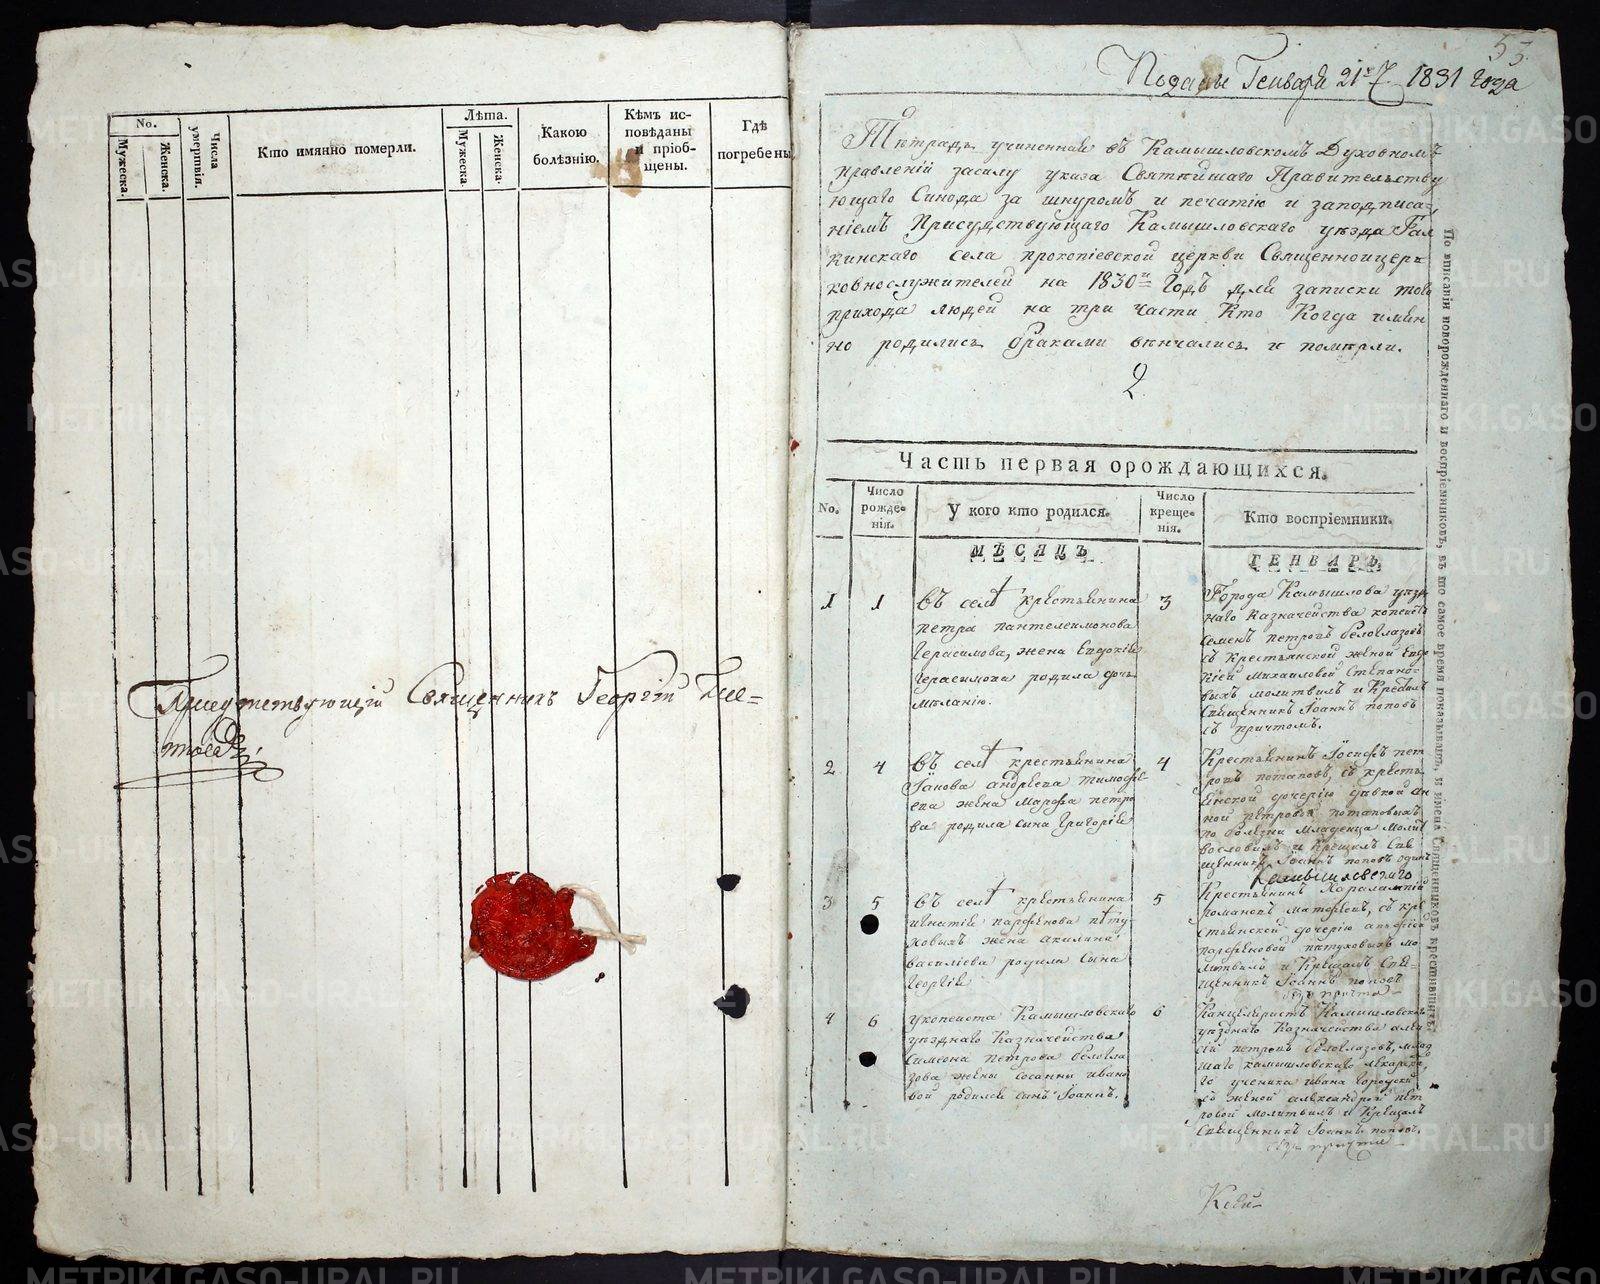 No.
Мужеска.
Женска.
Числа умертвія.
Кто имянно померли.
Лѣта.
Мужеска.
Женска.
Какою
болѣзнію.
Кѣмъ ис-
повѣданы
и пріоб-
щены.
Гдѣ
погребены
Присутствующій Священникъ Георгій
55.
Поданы Генваря 21 1831 года
Тетрадь учиненная въ Камышловскомъ Духовномъ
правленіи засилу указа Святѣйшаго Правительству
ющаго Синода за шнуромъ и печатію и заподписа-
ніемъ Присудствующаго Камышловскаго уѣзда Гал
кинскаго села прокопіевской церкви Священноцерк
ковнослужителей на 1830й Годъ для записки того
прихода людей на три части Кто Когда имян
но родились браками вѣнчались и померли.
2
Часть первая орождающихся.
No.
Число
рожде-
нія.
У кого кто родился.
Число
креще-
нія.
Кто воспріемники.
МѢСЯЦЪ
ГЕНВАРЬ
1
1
въ селѣ крестьянина
петра пантелеимонова
Герасимова, жена Евдокія
Герасимова родила дочь
меланію.
3
Города Камышлова уѣзд
наго Казначейства копеистъ
семенъ петровъ белоглазовъ
съ крестьянской женой Евдо
кіей Михаиловой Степано-
выхъ молитвилъ и Крестилъ
Священникъ Іоаннъ поповъ
съ причтомъ.
2
4
въ селѣ крестьянина
андреева тимофе
ева жена Марфа петро
ва родила сына Григорія
4
Крестьянинъ Іосифъ пет
ровъ потаповъ, съ кресть
янской дочерію дѣвкой ан
ной петровой потаповыхъ
по болѣзни младенца молит
вословилъ и Крещалъ Свя
щенникъ Іоаннъ поповъ одинъ
Камышловскаго
3
5
въ селѣ крестьянина
игнатія парфенова пѣту
ховыхъ жена акилина
василіева родила сына
Георгія
5
Крестьянинъ Харалампій
романовъ матфеевъ, съ кре
стьянской дочерію
парфеновой пѣтуховыхъ мо
литвилъ и Крещалъ Свя-
щенникъ Іоаннъ поповъ
безъ причта
4
6
укопеиста Камышловскаго
уѣзднаго Казначейства
Симеона петрова белогла
зова жены сосанны ивано
вой родился сынъ Іоаннъ.
6
Канцеляристъ Камышловскаго
уѣзднаго Казначейства алек
сій петровъ белоглазовъ, млад
шаго камышловскаго лекарска
го ученика ивана
съ женой александрой пет
ровой молитвилъ и Крещалъ
Священникъ Іоаннъ поповъ.
безъ причта
По вписаніи новорожденнаго и воспріемниковъ, въ то самое время показывать, и имена Священниковъ крестившихъ
METRIKI.GASO-URAL.RU